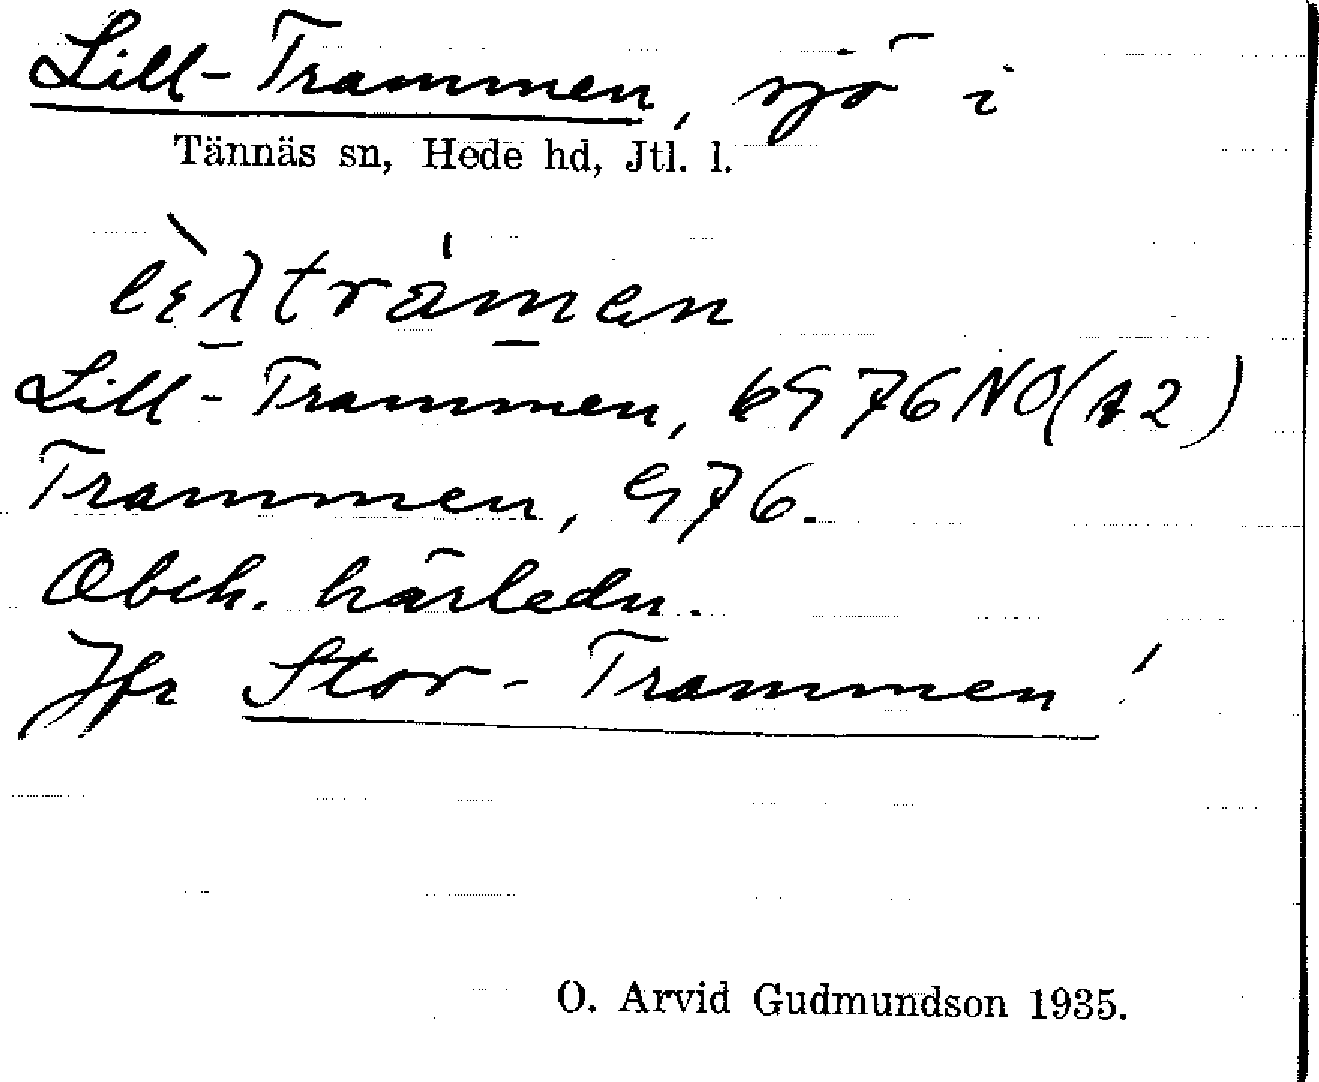 Lill-Trammen, sjö i
Tännäs sn, Hede hd, Jtl. l.
Lill-Trammen, kG 76 NO (A2)
Trammen, G 76.
Obek. härledn.
Jfr Stor-Trammen!
O. Arvid Gudmundson 1935.